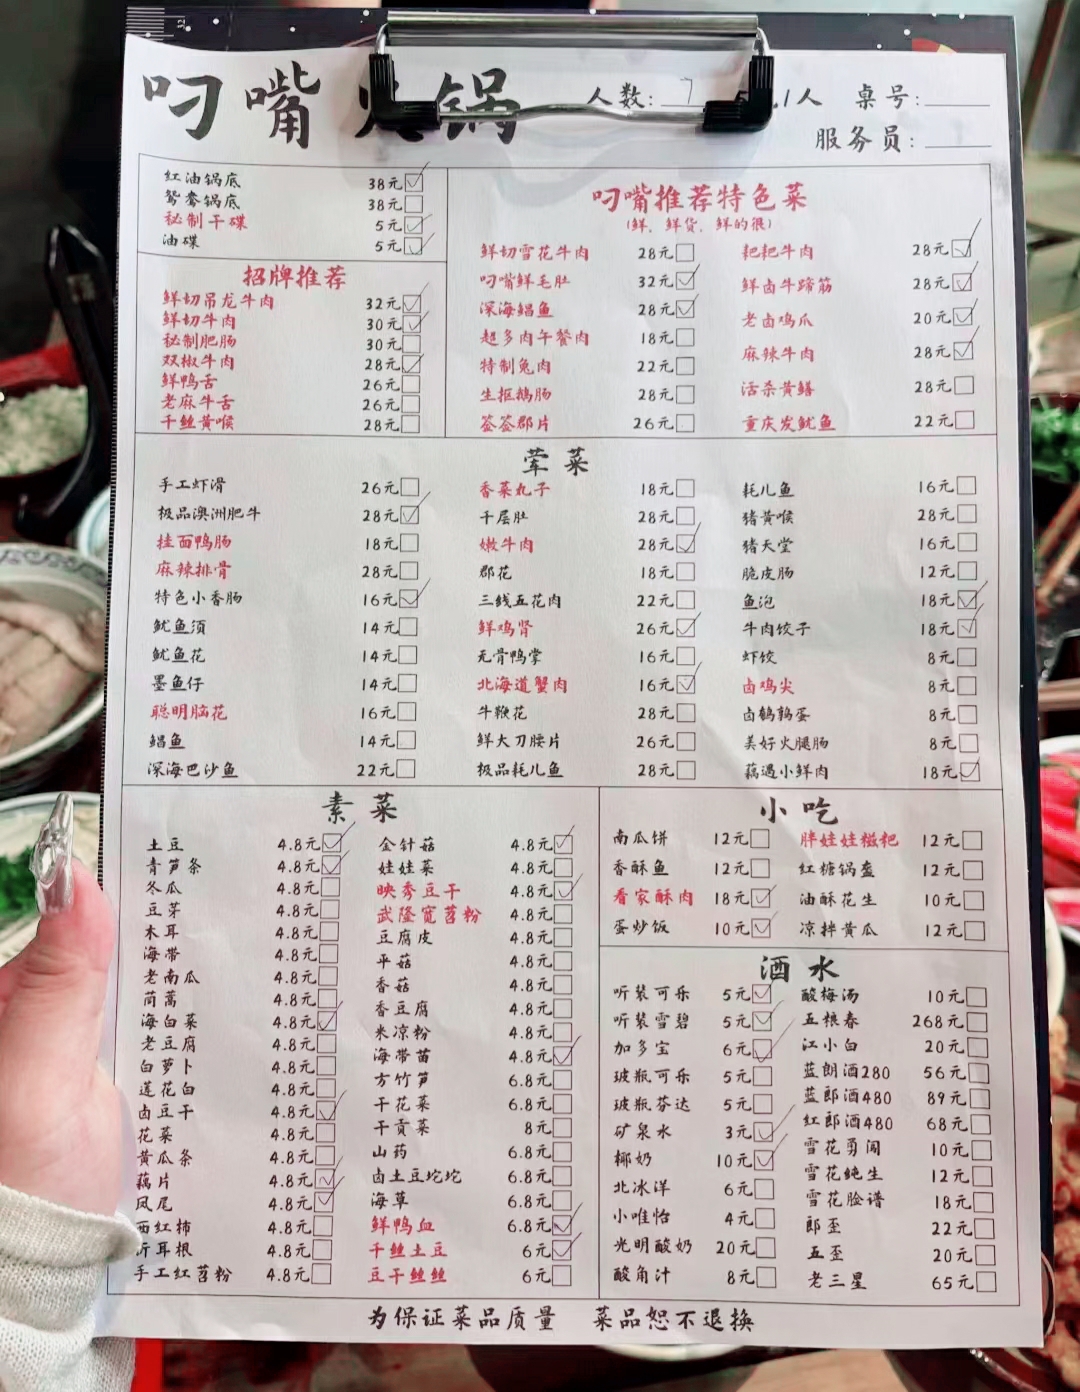 叼嘴火锅
人数: 7 人 桌号:
服务员:
红油锅底 38元
鸳鸯锅底 38元
秘制干碟 5元
油碟 5元
招牌推荐
鲜切吊龙牛肉 32元
鲜切牛肉 30元
秘制肥肠 30元
双椒牛肉 28元
鲜鸭舌 26元
老麻牛舌 26元
千丝黄喉 28元
叼嘴推荐特色菜
(鲜、鲜货、鲜的很)
鲜切雪花牛肉 28元
叼嘴鲜毛肚 32元
深海鲳鱼 28元
超多肉午餐肉 18元
特制兔肉 22元
生抠鹅肠 28元
签签郡片 26元
耙耙牛肉 28元
鲜卤牛蹄筋 28元
老卤鸡爪 20元
麻辣牛肉 28元
活杀黄鳝 28元
重庆发鱿鱼 22元
荤菜
手工虾滑 26元
极品澳洲肥牛 28元
挂面鸭肠 18元
麻辣排骨 28元
特色小香肠 16元
鱿鱼须 14元
鱿鱼花 14元
墨鱼仔 14元
聪明脑花 16元
鲳鱼 14元
深海巴沙鱼 22元
香菜丸子 18元
千层肚 28元
嫩牛肉 28元
郡花 18元
三线五花肉 22元
鲜鸡肾 26元
无骨鸭掌 16元
北海道蟹肉 16元
牛鞭花 28元
鲜大刀腰片 26元
极品耗儿鱼 28元
耗儿鱼 16元
猪黄喉 28元
猪天堂 16元
脆皮肠 12元
鱼泡 18元
牛肉饺子 18元
虾饺 8元
卤鸡尖 8元
卤鹌鹑蛋 8元
美好火腿肠 8元
藕遇小鲜肉 18元
素菜
土豆 4.8元
青笋条 4.8元
冬瓜 4.8元
豆芽 4.8元
木耳 4.8元
海带 4.8元
老南瓜 4.8元
茼蒿 4.8元
海白菜 4.8元
老豆腐 4.8元
白萝卜 4.8元
莲花白 4.8元
卤豆干 4.8元
花菜 4.8元
黄瓜条 4.8元
藕片 4.8元
凤尾 4.8元
西红柿 4.8元
折耳根 4.8元
手工红苕粉 4.8元
金针菇 4.8元
娃娃菜 4.8元
映秀豆干 4.8元
武隆宽苕粉 4.8元
豆腐皮 4.8元
平菇 4.8元
香菇 4.8元
香豆腐 4.8元
米凉粉 4.8元
海带苗 4.8元
方竹笋 6.8元
干花菜 6.8元
干贡菜 8元
山药 6.8元
卤土豆坨坨 6.8元
海草 6.8元
鲜鸭血 6.8元
千丝土豆 6元
豆干丝丝 6元
小吃
南瓜饼 12元
香酥鱼 12元
看家酥肉 18元
蛋炒饭 10元
胖娃娃糍粑 12元
红糖锅盔 12元
油酥花生 10元
凉拌黄瓜 12元
酒水
听装可乐 5元
听装雪碧 5元
加多宝 6元
玻瓶可乐 5元
玻瓶芬达 5元
矿泉水 3元
椰奶 10元
北冰洋 6元
小唯怡 4元
光明酸奶 20元
酸角汁 8元
酸梅汤 10元
五粮春 268元
江小白 20元
蓝朗酒280 56元
蓝郎酒480 89元
红郎酒480 68元
雪花勇闯 10元
雪花纯生 12元
雪花脸谱 18元
郎歪 22元
五歪 20元
老三星 65元
为保证菜品质量 菜品恕不退换